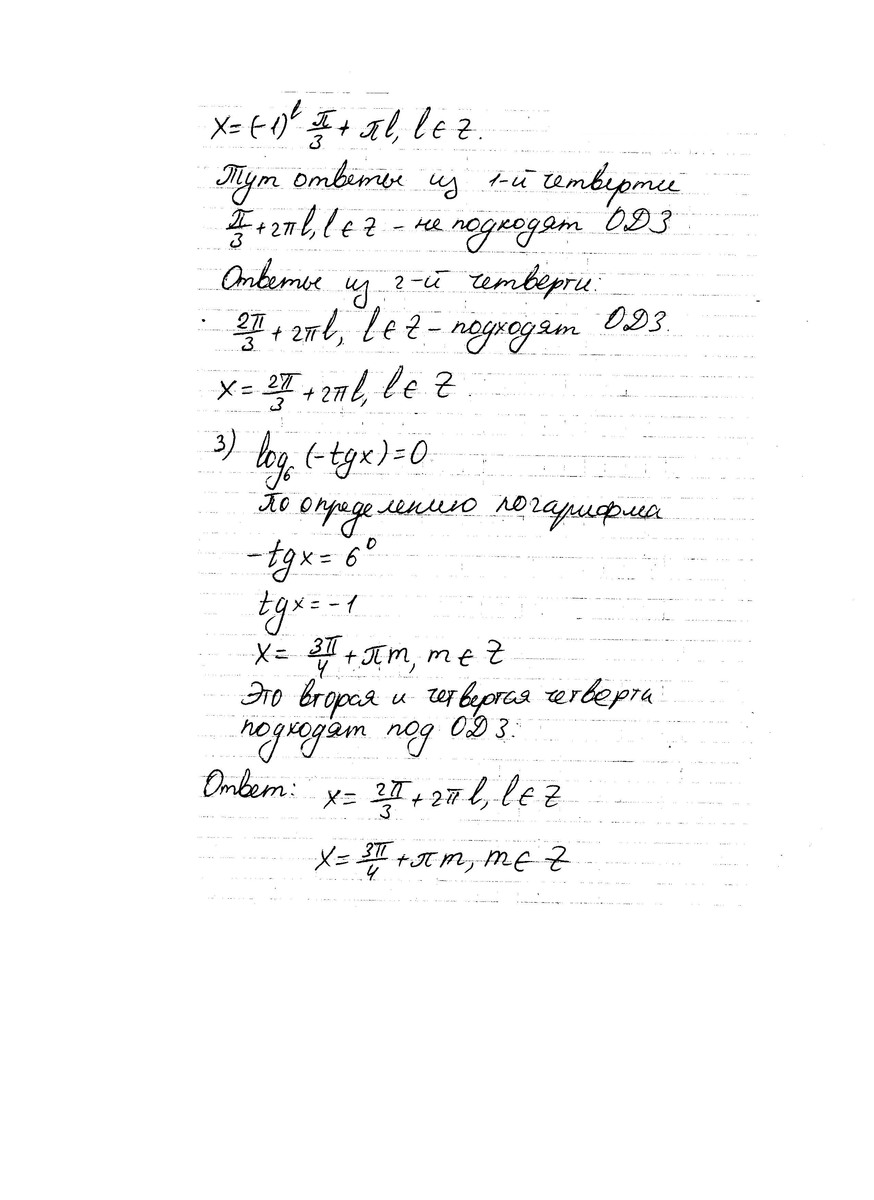 x = (-1)^l π/3 + πl, l ∈ Z.
Тут ответы из 1-й четверти
π/3 + 2πl, l ∈ Z - не подходят ОДЗ
Ответы из 2-й четверти:
2π/3 + 2πl, l ∈ Z - подходят ОДЗ.
x = 2π/3 + 2πl, l ∈ Z
3) log₆ (-tg x) = 0
По определению логарифма
-tg x = 6⁰
tg x = -1
x = 3π/4 + πm, m ∈ Z
Это вторая и четвертая четверти
подходят под ОДЗ.
Ответ: x = 2π/3 + 2πl, l ∈ Z
x = 3π/4 + πm, m ∈ Z